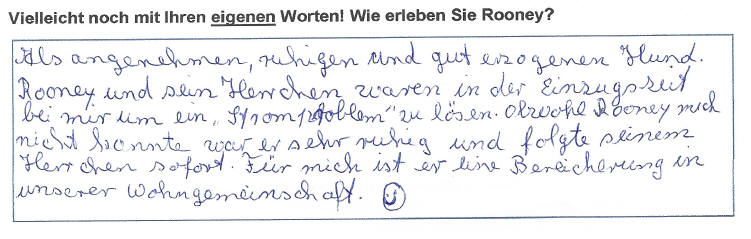 Vielleicht noch mit Ihren eigenen Worten! Wie erleben Sie Rooney?
Als angenehmen, ruhigen und gut erzogenen Hund.
Rooney und sein Herrchen waren in der Einzugszeit
bei mir um ein „Stromproblem" zu lösen. Obwohl Rooney mich
nicht kannte war er sehr ruhig und folgte seinem
Herrchen sofort. Für mich ist er eine Bereicherung in
unserer Wohngemeinschaft. ☺